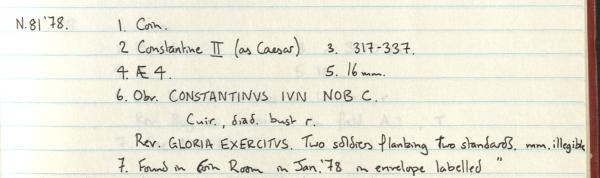 N.81'78. 1. Coin.
2 Constantine II (as Caesar) 3. 317-337.
4. Æ 4. 5. 16mm.
6. Obv. CONSTANTINVS IVN NOB C.
Cuir., diad. bust r.
Rev. GLORIA EXERCITVS. Two soldiers flanking two standards. mm. illegible
7. Found in Coin Room in Jan. '78 in envelope labelled "